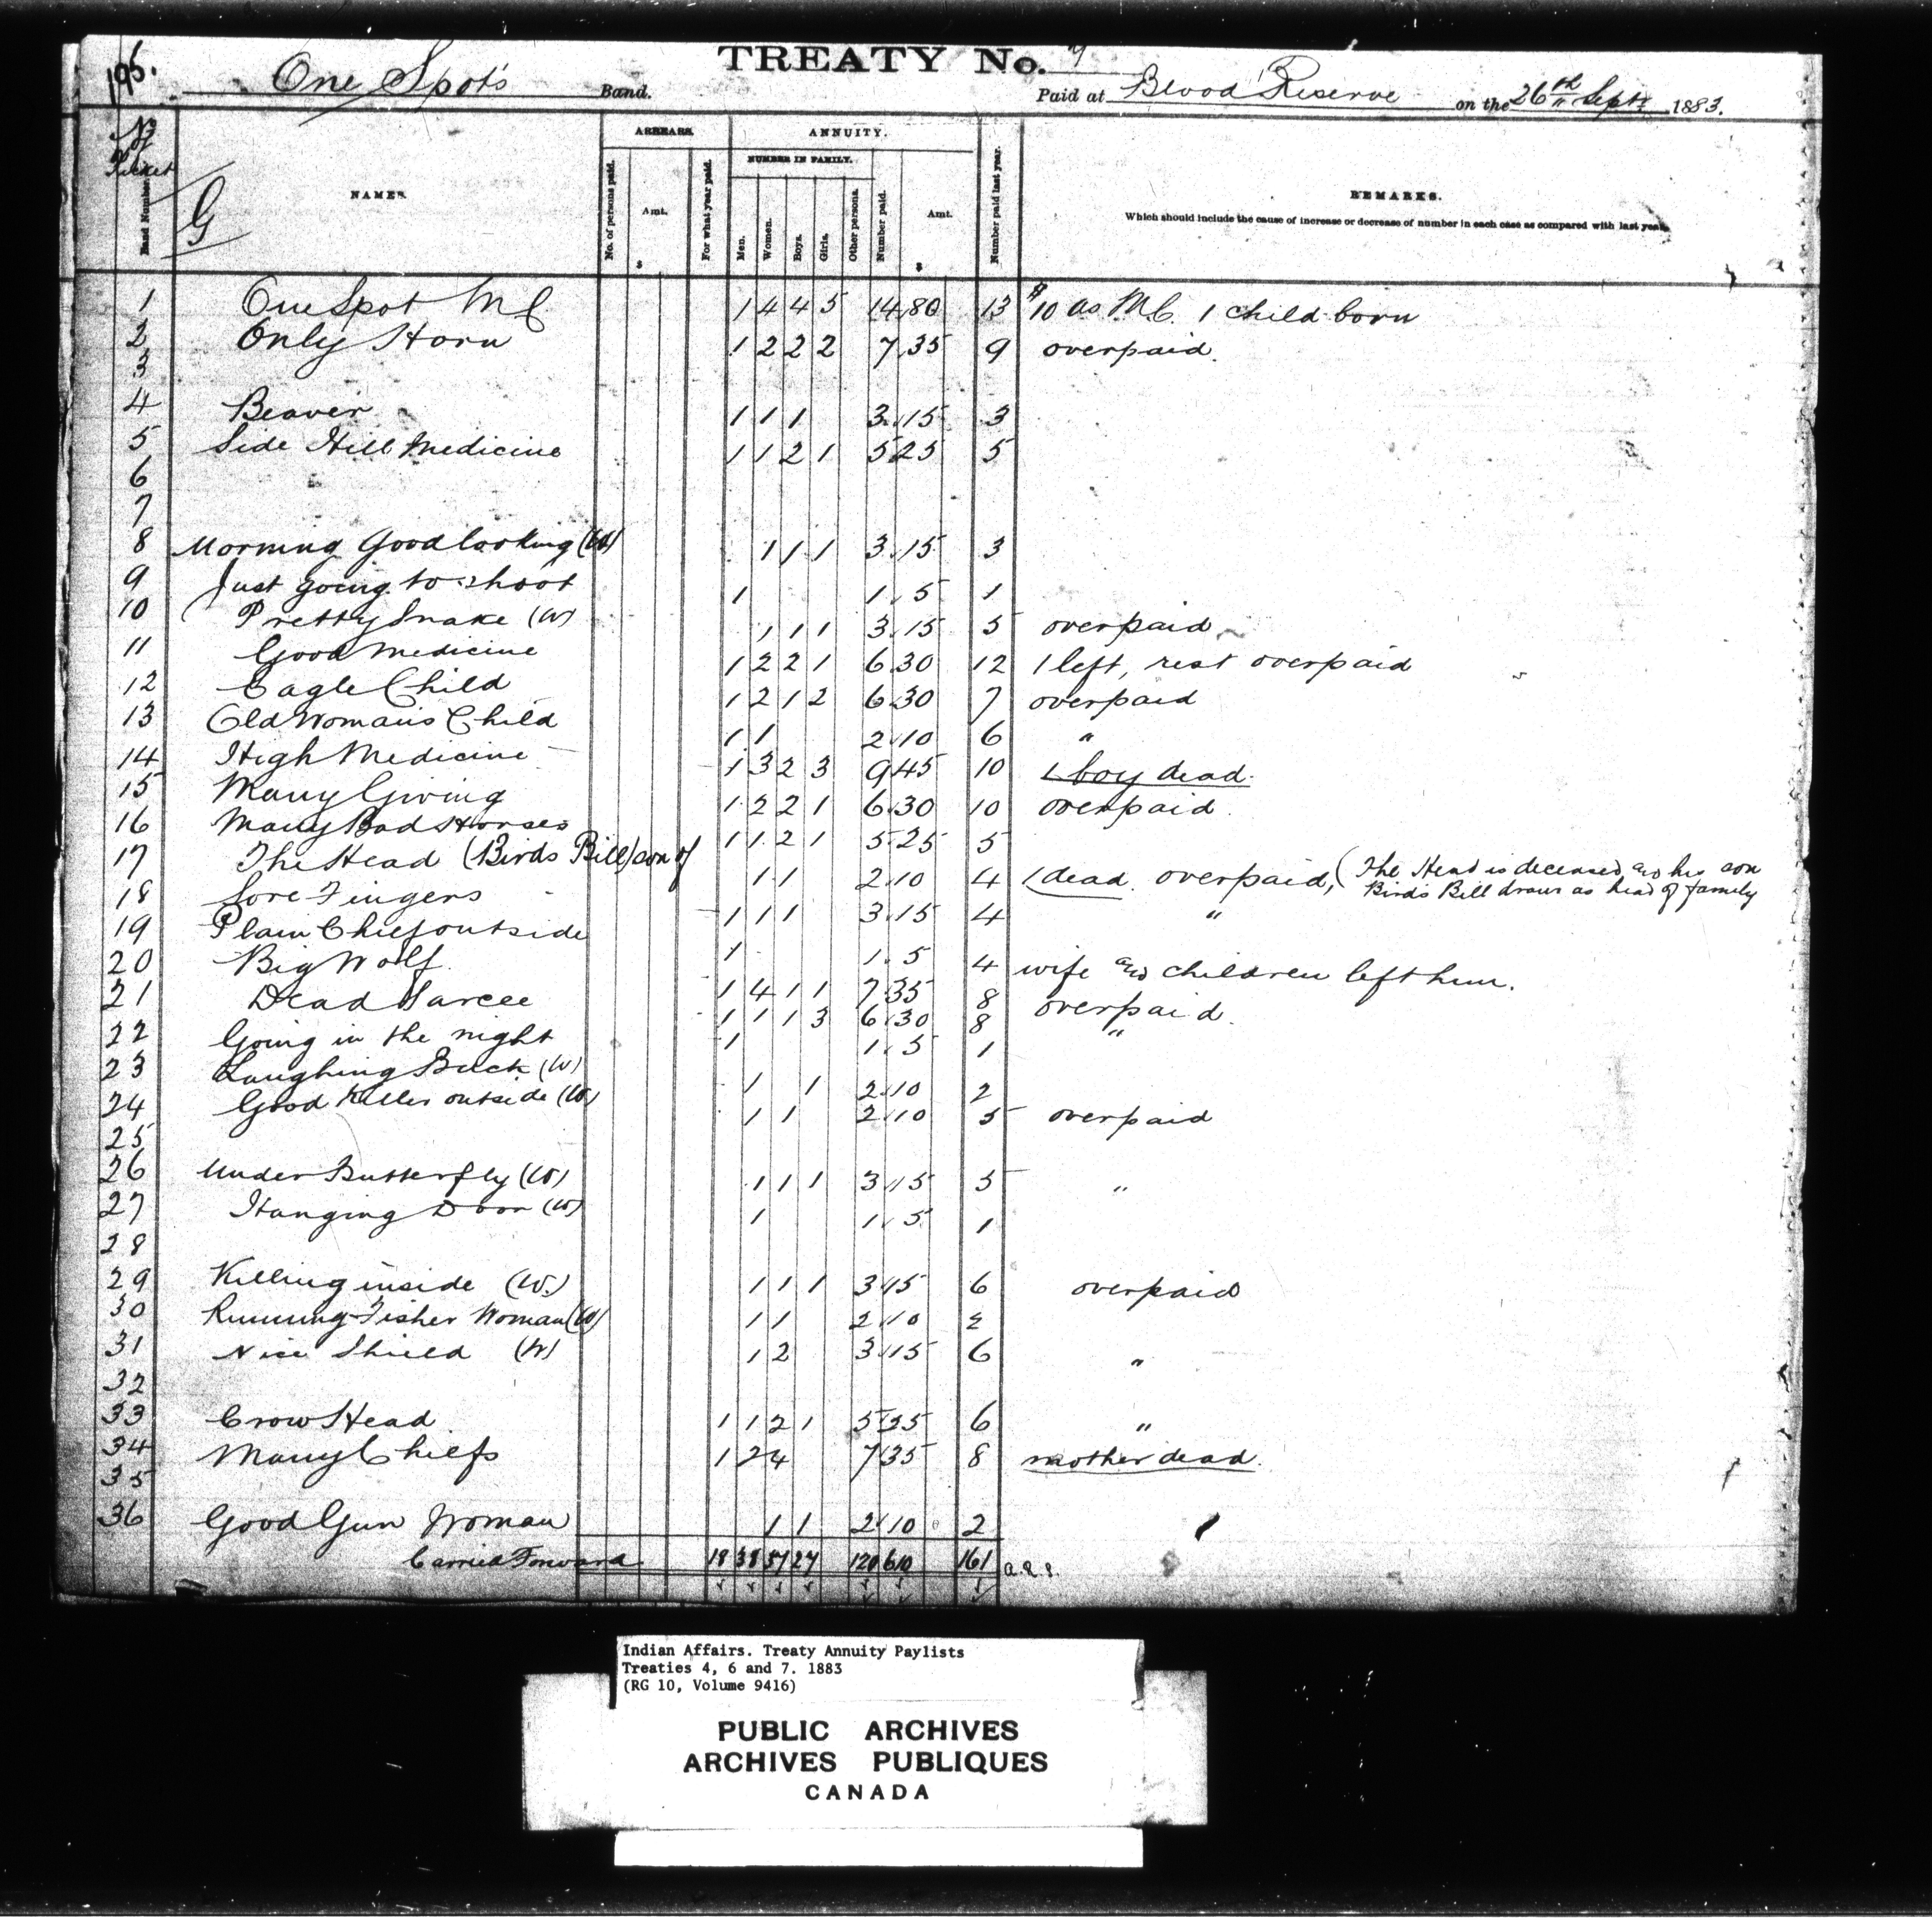 195.
TREATY No. 7
One Spot's Band. Paid at Blood Reserve on the 26th Sept. 1883.
No of Ticket
Band Number.
G
NAMES.
ARREARS.
No. of persons paid.
Amt.
$
For what year paid.
ANNUITY.
NUMBER IN FAMILY.
Men.
Women.
Boys.
Girls.
Other persons.
Number paid.
Amt.
$
Number paid last year.
REMARKS.
Which should include the cause of increase or decrease of number in each case as compared with last year.
1 One Spot M C 1 4 4 5 14 80 13 $10 as M.C. 1 child born
2 Only Horn 1 2 2 2 7 35 9 overpaid.
3
4 Beaver 1 1 1 3 15 3
5 Side Hill Medicine 1 1 2 1 5 25 5
6
7
8 Morning Good looking (W) 1 1 1 3 15 3
9 Just going to shoot 1 1 5 1
10 Pretty Snake (W) 1 1 1 3 15 5 overpaid
11 Good Medicine 1 2 2 1 6 30 12 1 left, rest overpaid
12 Eagle Child 1 2 1 2 6 30 7 overpaid
13 Old Woman's Child 1 1 2 10 6 "
14 High Medicine 1 3 2 3 9 45 10 1 boy dead.
15 Many Giving 1 2 2 1 6 30 10 overpaid.
16 Many Bad Horses 1 1 2 1 5 25 5
17 The Head (Birds Bill) son of 1 1 2 10 4 1 dead. overpaid, (The Head is deceased and his son
Bird's Bill draws as head of family
18 Sore Fingers 1 1 1 3 15 4 "
19 Plain Chief outside 1 1 5 4 wife and children left him.
20 Big Wolf 1 4 1 1 7 35 8 overpaid.
21 Dead Sarcee 1 1 1 3 6 30 8 "
22 Going in the night 1 1 5 1
23 Laughing Buck (W) 1 1 2 10 2
24 Good Killer outside (W) 1 1 2 10 5 overpaid
25
26 Under Butterfly (W) 1 1 1 3 15 5 "
27 Hanging Door (W) 1 1 5 1
28
29 Killing inside (W.) 1 1 1 3 15 6 overpaid
30 Running Fisher Woman (W) 1 1 2 10 2
31 Nice Shield (W) 1 2 3 15 6 "
32
33 Crow Head 1 1 2 1 5 35 6 "
34 Many Chiefs 1 2 4 7 35 8 mother dead.
35
36 Good Gun Woman 1 1 2 10 2
Carried Forward 18 38 37 27 120 610 161
Indian Affairs. Treaty Annuity Paylists
Treaties 4, 6 and 7. 1883
(RG 10, Volume 9416)
PUBLIC ARCHIVES
ARCHIVES PUBLIQUES
CANADA